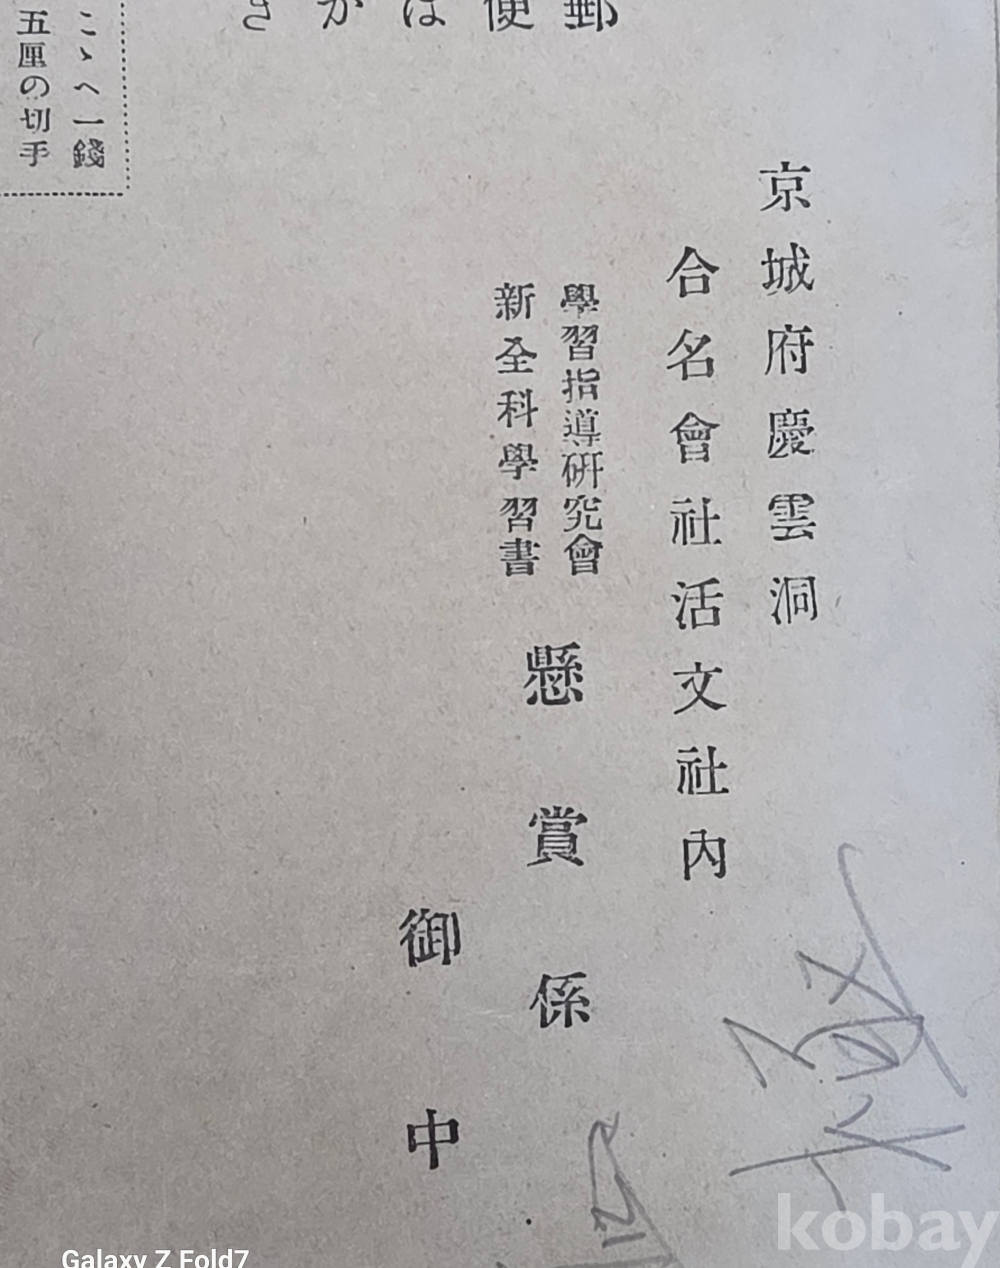 郵便はがき
こゝへ一錢
五厘の切手
京城府慶雲洞
合名會社活文社內
學習指導硏究會
新全科學習書
懸賞係
御中
kobay
Galaxy Z Fold7